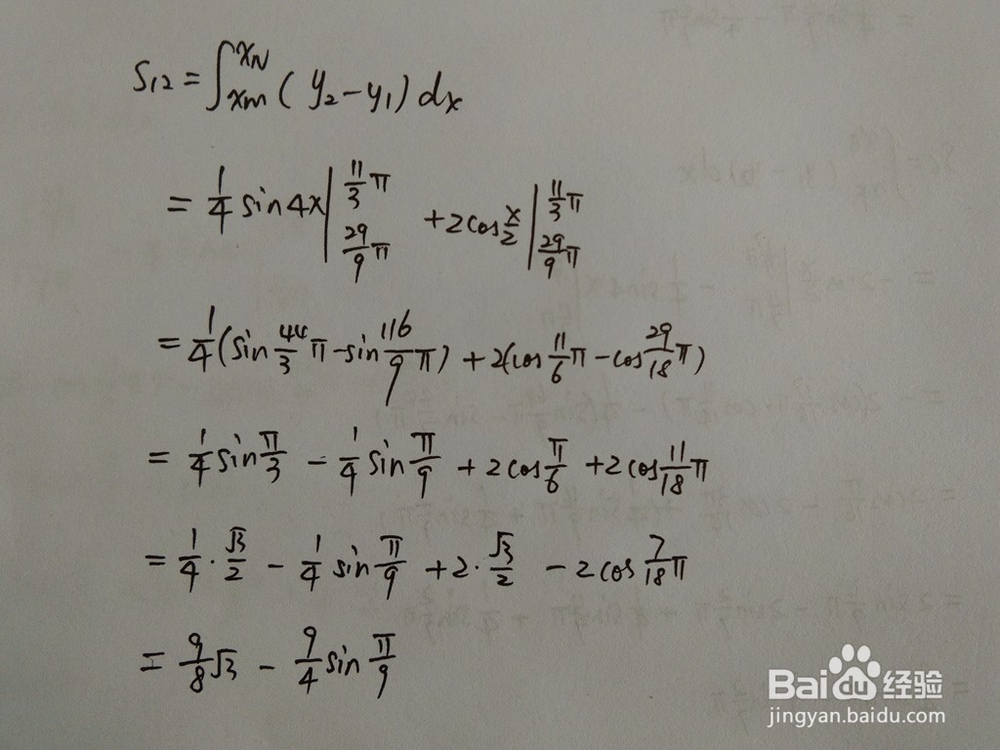 S12 = ∫_{xm}^{xN} (y₂ - y₁) dx
= 1/4 sin4x |_{29/9 π}^{11/3 π} + 2cos x/2 |_{29/9 π}^{11/3 π}
= 1/4 (sin 44/3 π - sin 116/9 π) + 2(cos 11/6 π - cos 29/18 π)
= 1/4 sin π/3 - 1/4 sin π/9 + 2cos π/6 + 2cos 11/18 π
= 1/4 · √3/2 - 1/4 sin π/9 + 2 · √3/2 - 2cos 7/18 π
= 9/8 √3 - 9/4 sin π/9
Baidu 经验
jingyan.baidu.com